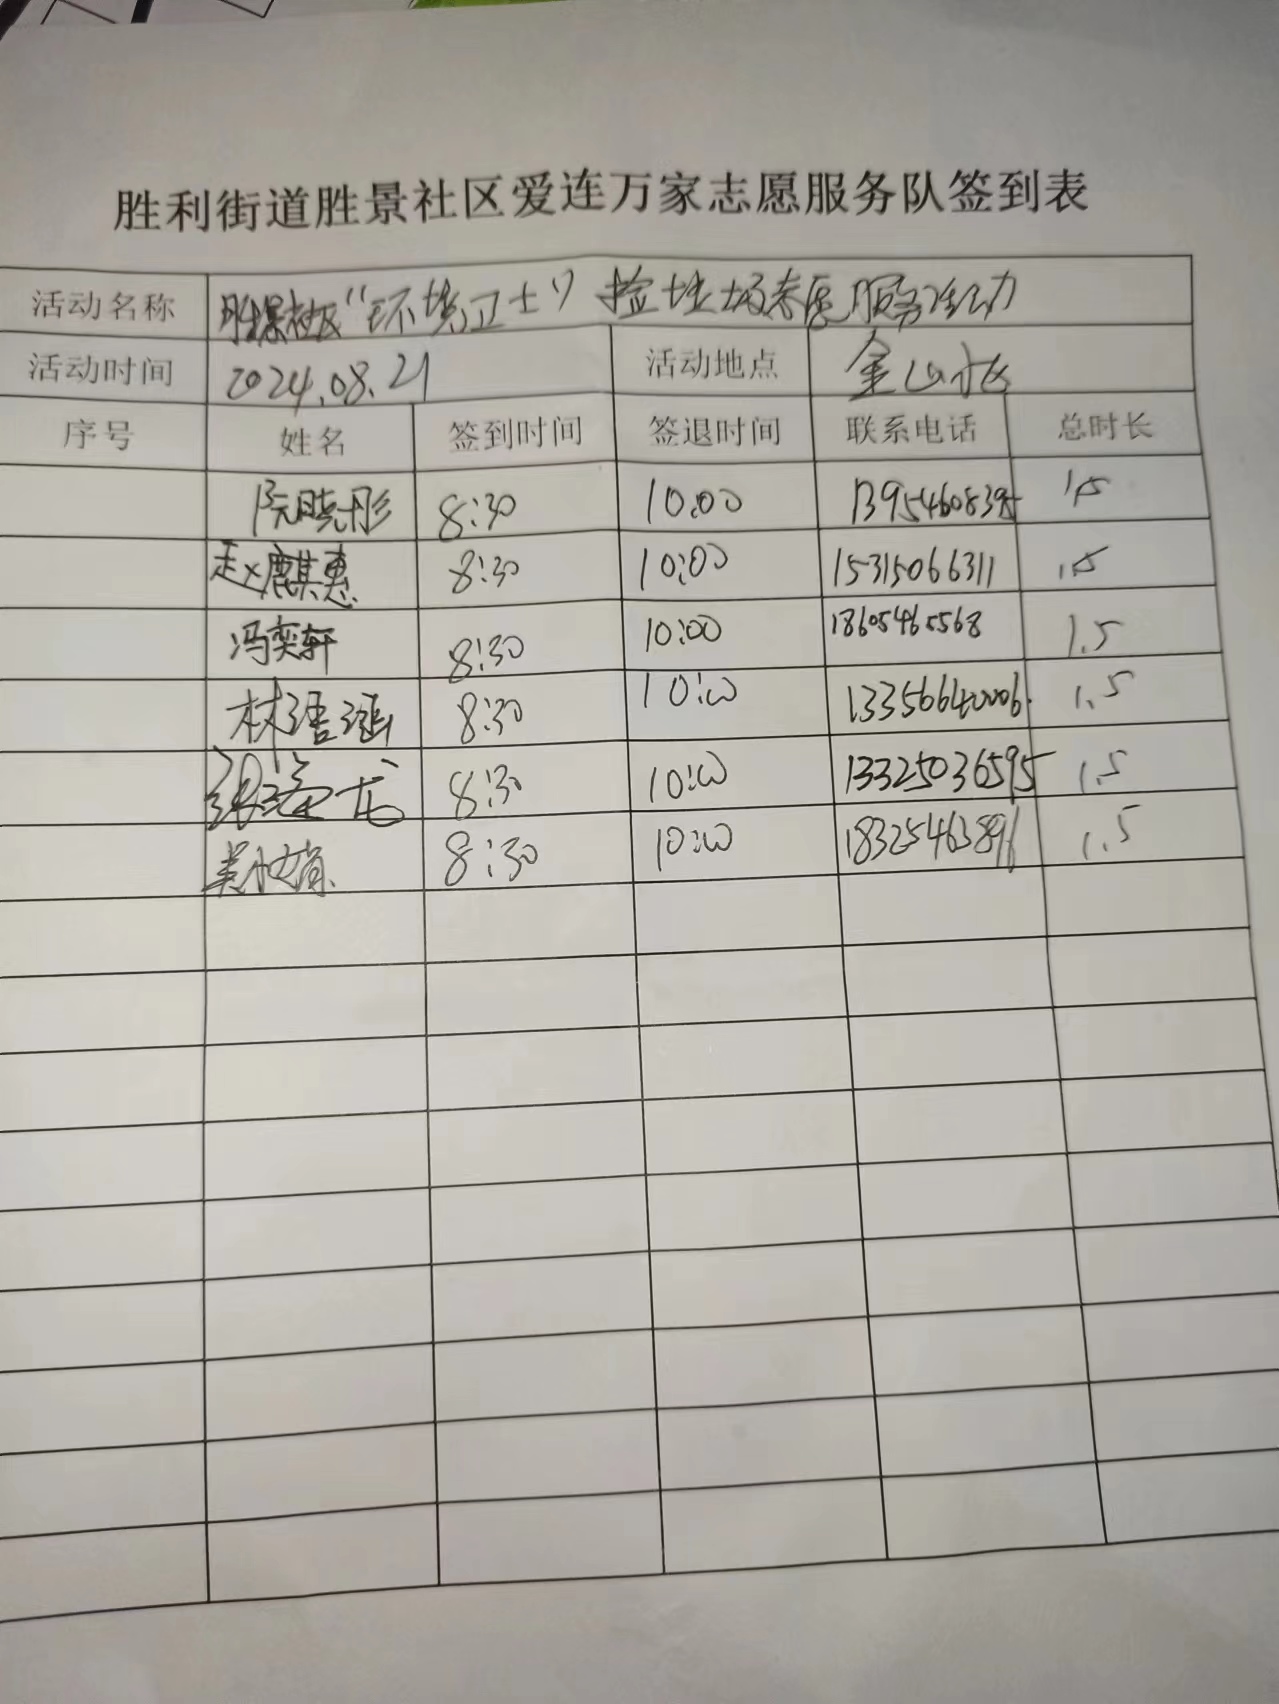 胜利街道胜景社区爱连万家志愿服务队签到表
活动名称 胜景社区“环境卫士” 捡垃圾志愿服务活动
活动时间 2024.08.21 活动地点 金山小区
序号 姓名 签到时间 签退时间 联系电话 总时长
阮晓彤 8:30 10:00 13954608395 1.5
赵麒惠 8:30 10:00 15315066311 1.5
冯奕轩 8:30 10:00 1.5
林语涵 8:30 10:00 13356640006 1.5
张溢龙 8:30 10:00 13325036595 1.5
8:30 10:00 18325463896 1.5